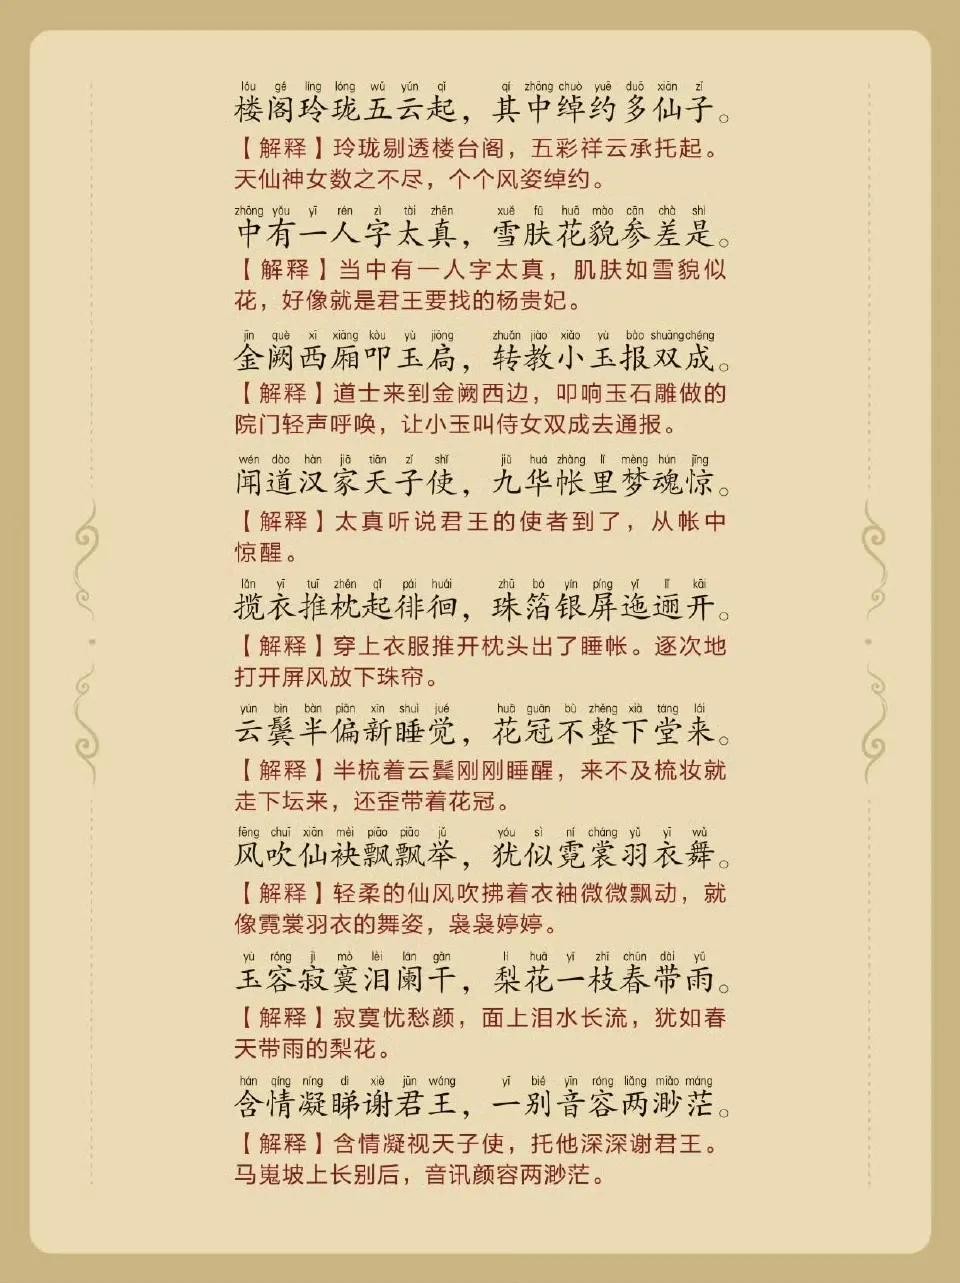 lóu gé líng lóng wǔ yún qǐ qí zhōng chuò yuē duō xiān zǐ
楼阁玲珑五云起，其中绰约多仙子。
【解释】玲珑剔透楼台阁，五彩祥云承托起。
天仙神女数之不尽，个个风姿绰约。
zhōng yǒu yī rén zì tài zhēn xuě fū huā mào cēn chà shì
中有一人字太真，雪肤花貌参差是。
【解释】当中有一人字太真，肌肤如雪貌似
花，好像就是君王要找的杨贵妃。
jīn què xī xiāng kòu yù jiōng zhuǎn jiào xiǎo yù bào shuāng chéng
金阙西厢叩玉扃，转教小玉报双成。
【解释】道士来到金阙西边，叩响玉石雕做的
院门轻声呼唤，让小玉叫侍女双成去通报。
wén dào hàn jiā tiān zǐ shǐ jiǔ huá zhàng lǐ mèng hún jīng
闻道汉家天子使，九华帐里梦魂惊。
【解释】太真听说君王的使者到了，从帐中
惊醒。
lǎn yī tuī zhěn qǐ pái huái zhū bó yín píng yǐ lǐ kāi
揽衣推枕起徘徊，珠箔银屏迤逦开。
【解释】穿上衣服推开枕头出了睡帐。逐次地
打开屏风放下珠帘。
yún bìn bàn piān xīn shuì jué huā guān bù zhěng xià táng lái
云鬓半偏新睡觉，花冠不整下堂来。
【解释】半梳着云鬓刚刚睡醒，来不及梳妆就
走下坛来，还歪带着花冠。
fēng chuī xiān mèi piāo piāo jǔ yóu sì ní cháng yǔ yī wǔ
风吹仙袂飘飘举，犹似霓裳羽衣舞。
【解释】轻柔的仙风吹拂着衣袖微微飘动，就
像霓裳羽衣的舞姿，袅袅婷婷。
yù róng jì mò lèi lán gān lí huā yī zhī chūn dài yǔ
玉容寂寞泪阑干，梨花一枝春带雨。
【解释】寂寞忧愁颜，面上泪水长流，犹如春
天带雨的梨花。
hán qíng níng dì xiè jūn wáng yī bié yīn róng liǎng miǎo máng
含情凝睇谢君王，一别音容两渺茫。
【解释】含情凝视天子使，托他深深谢君王。
马嵬坡上长别后，音讯颜容两渺茫。